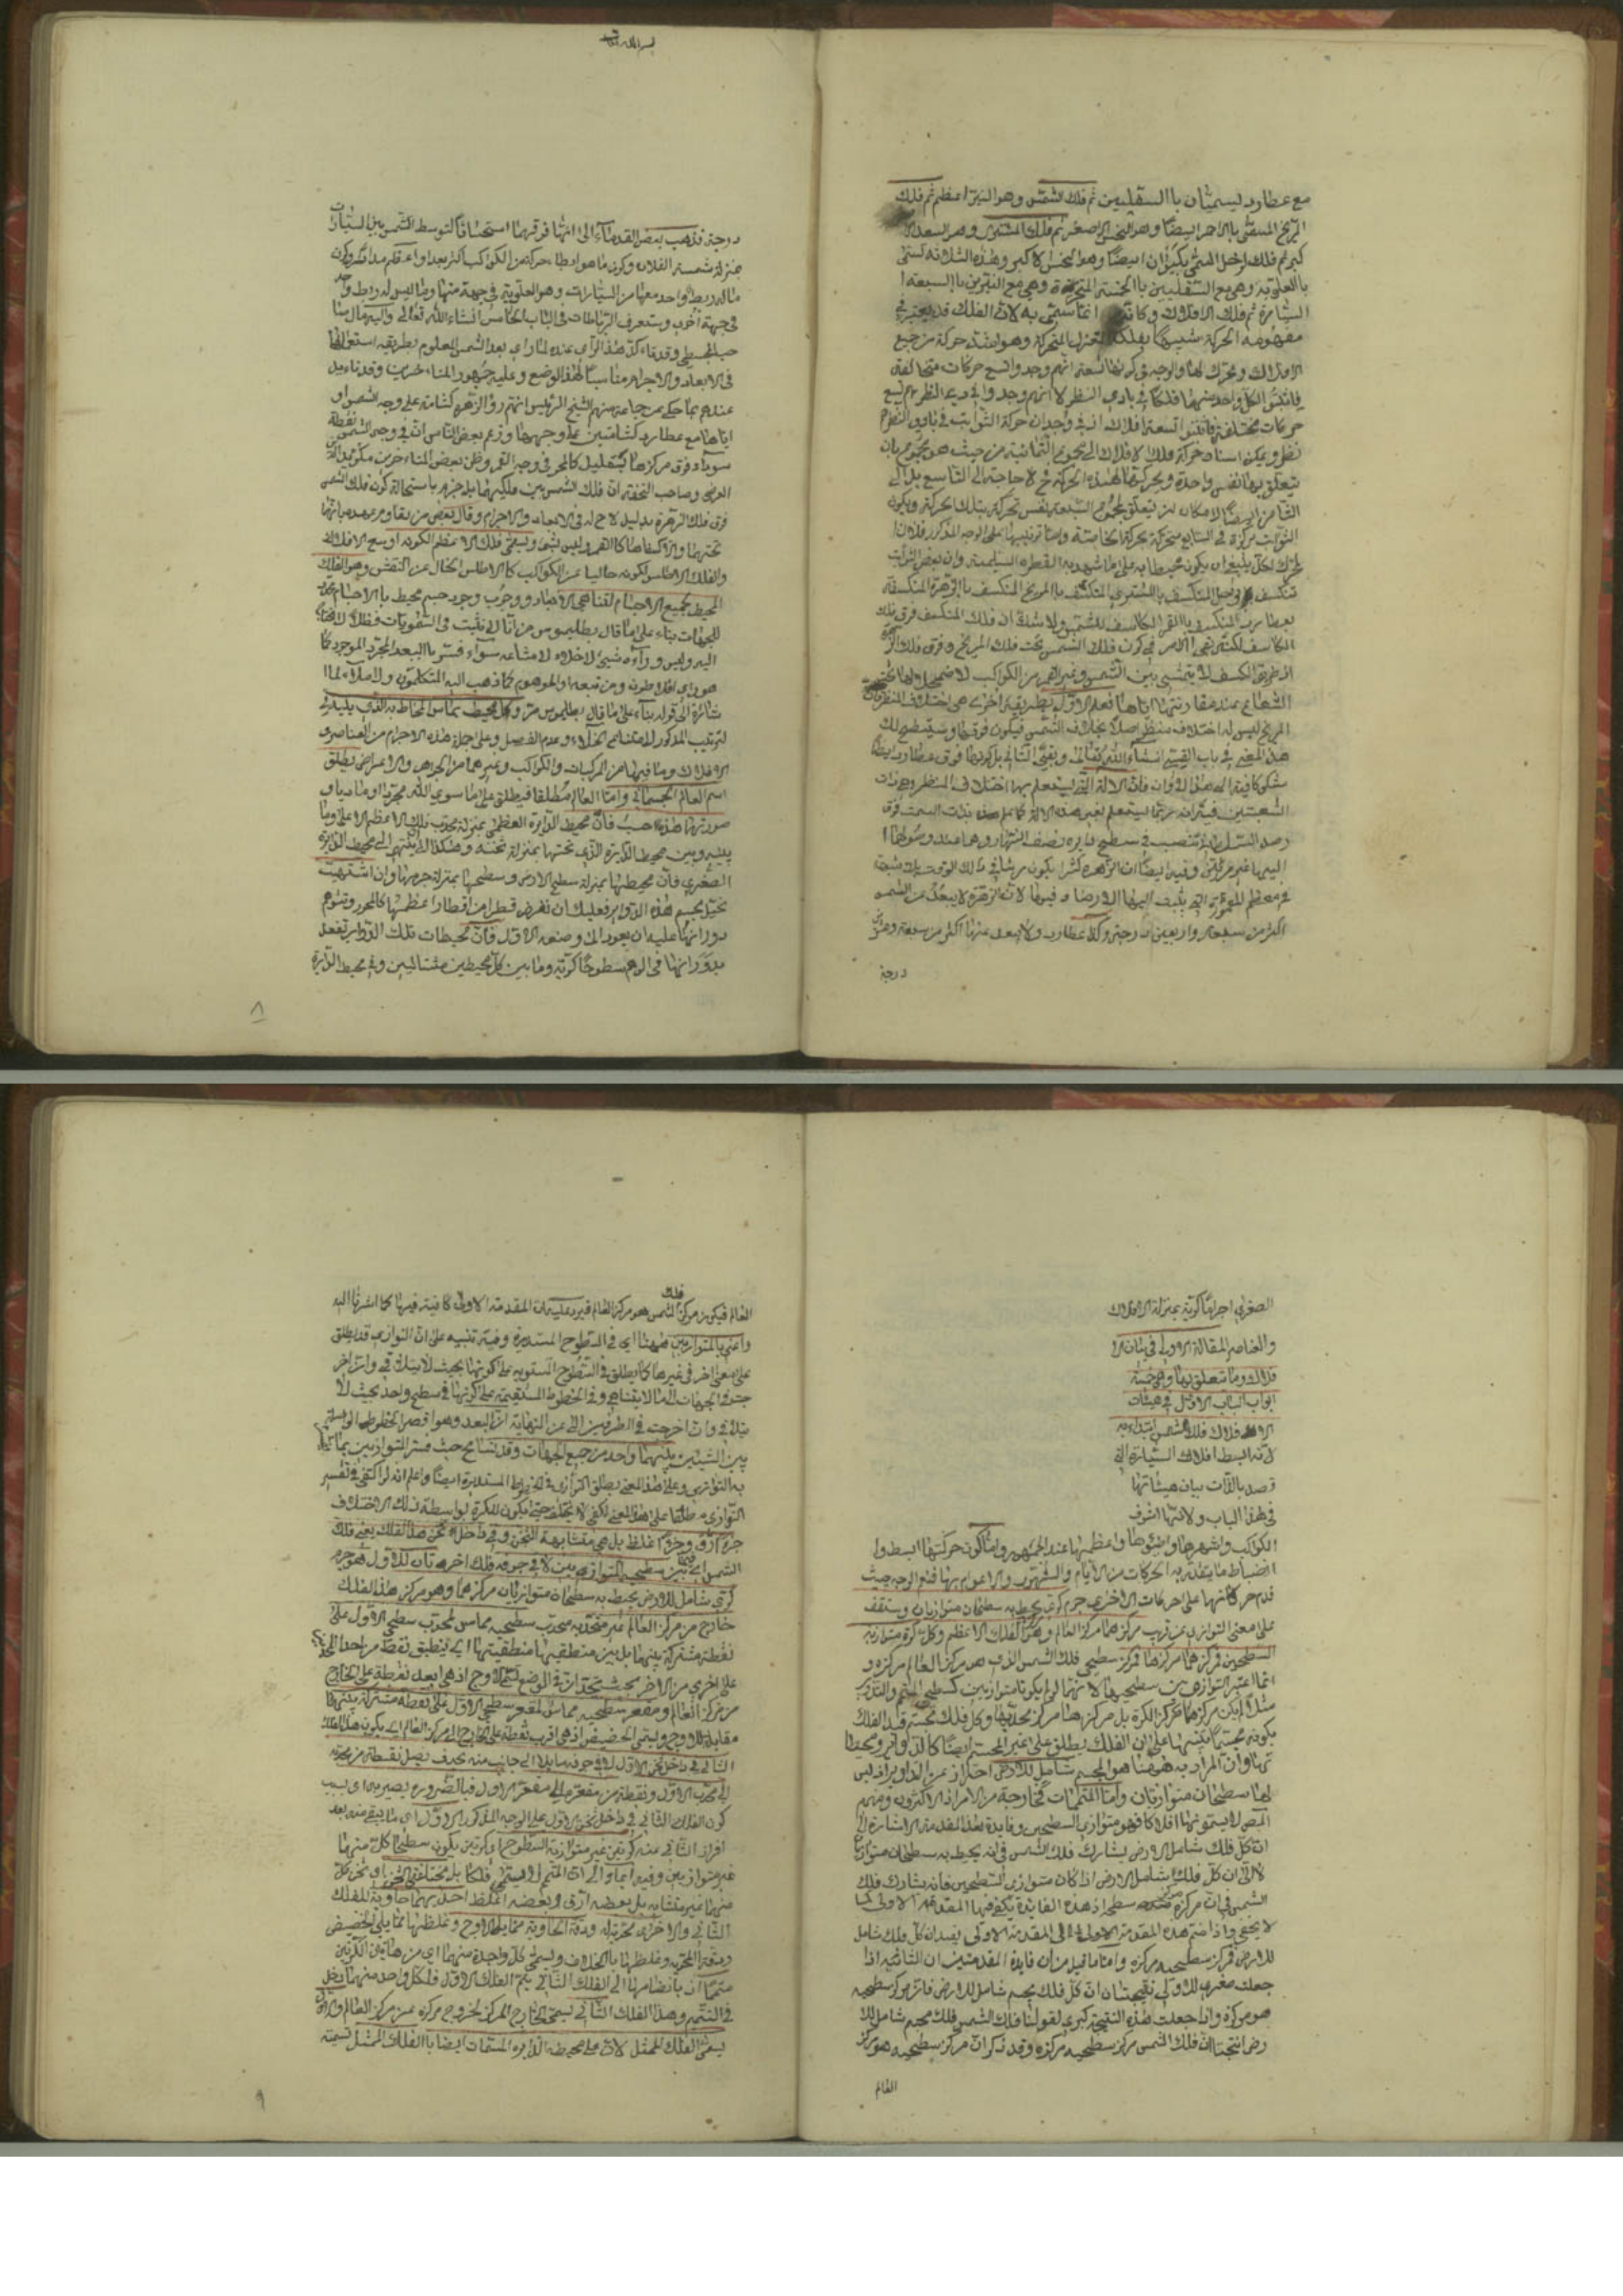 مع عطارد يسميان بالسفليين ثم فلك الشمس وهو النير الاعظم ثم فلك
المريخ المسمى بالاحمر ايضا وهو النحس الاصغر ثم فلك المشتري وهو السعد الا
كبر ثم فلك زحل المسمى بكيوان ايضا وهو النحس الاكبر وهذه الثلاثة تسمى
بالعلوية وهي مع السفليين بالخمسة المتحيرة وهي مع النيرين بالسبعة ا
السيارة ثم فلك الافلاك وكانه انما سمى به لان الفلك قد يعتبر في
مفهومه الحركة
الافلاك ومحرك لها والوجه في كونها تسعة انهم وجدوا تسع حركات متخالفة
فاثبتوا لكل واحد منها فلكا في بادي النظر لا انهم وجدوا في بادي النظر تسع
حركات مختلفة فاثبتوا تسعة افلاك اذ وجدان حركة الثوابت في بادي النظر
يتعلق بها نفس واحدة ويحركها هذه الحركة فح لا حاجة الى التاسع بل الى
الثوابت مركوزة في السابع متحركة بحركة الخاصة واما ترتيبها على الوجه المذكور فلان
تنكسف بزحل المنكسف بالمشتري المنكسف بالمريخ المنكسف بالزهرة المنكسفة
بعطارد المنكسف بالقمر الكاسف للشمس ولا شك ان فلك المنكسف فوق فلك
الكاسف لكنه بقى الامر في كون فلك الشمس تحت فلك المريخ وفوق فلك الزهرة
اذ طريق الكسف لا يتمشى بين الشمس وغير القمر من الكواكب لاضمحلالها تحت
الشعاع عند مقارنتها اياها فعلم الاول بطريقة اخرى هي اختلاف المنظر فان
المريخ ليس له اختلاف منظر اصلا بخلاف الشمس فيكون فوقها وسيتضح لك
هذا المعنى في باب القسي انشاء الله تعالى وبقى الثاني بل كونها فوق عطارد ايضا
مشكوكا فيه الى هذا الاوان فان الالة التي يعلم بها اختلاف المنظر وهي ذات
الشعبتين
تنصب في سطح دايرة نصف النهار وهما عند وصولهما ا
اليها غير مرئيين وفيه ايضا ان الزهرة كثيرا يكون مرئيا في ذلك الوقت
في معظم المعمورة
اكثر من سبعة واربعين درجة وكذا عطارد ولا يبعد عنها اكثر من سبعة وعشرين
درجة
درجة فذهب بعض القدماء الى انها فوقها استحسانا لتوسط الشمس بين السيارات
بمنزلة شمسة القلادة وكون ما هو ابطاء حركة من الكواكب اكثر بعدا
ماله ربط واحد معها من السيارات وهو العلوية في جهة منها وما ليس له ربط واحد
في جهة اخرى وستعرف الرباطات في الباب الخامس انشاء الله تعالى واليه مال صا
حب المجسطي وقد تاكد هذا الراي عنده لما راى بعد الشمس المعلوم بطريقه
في الابعاد والاجرام مناسبا لهذا الوضع وعليه جمهور المتاخرين وقد تايد
عندهم بما حكى عن جماعة منهم الشيخ الرئيس انهم رؤا الزهرة كشامة على وجه الشمس او
اياها مع عطارد كشامتين على وجهها وزعم بعض الناس ان في وجه الشمس نقطة
سوداء فوق مركزها بقليل كالمحو في وجه القمر وظن بعض المتاخرين
العرضي وصاحب التحفة ان فلك الشمس بين فلكيهما بل جزم باستحالة كون فلك الشمس
فوق فلك الزهرة بدليل لاح له في الابعاد والاجرام وقال بعض
تحتها وليسمى فلك الاعظم لكونه اوسع الافلاك
والفلك الاطلس لكونه خاليا عن الكواكب كالاطلس الخال عن النقش وهو الفلك
المحيط بجميع الاجسام لتناهي الابعاد ووجوب وجود جسم محيط بالاجسام محدد
للجهات بناء على ما قال بطليموس
اليه وليس وراءه شيئ لا خلاء ولا ملاء سواء فسر بالبعد المجرد الموجود كما
هو راي افلاطون ومن تبعه او الموهوم كما ذهب اليه المتكلمون ولا ملاء لما ا
شارة الى قوله بناء على ما قال بطليموس وكل محيط يماس المحاط به الذي يليه في
لترتيب المذكور لامتناع الخلاء وعدم الفصل وعلى جملة هذه الاجرام من العناصر و
الافلاك وما فيها من المركبات والكواكب وغيرهما من الجواهر والاعراض يطلق
اسم العالم الجسماني واما العالم مطلقا فيطلق على ما سوى الله مجردا او ماديا و
صورتها هذه حسب فان محيط الدايرة العظمى بمنزلة محدب فلك الاعظم الاعلى وما
بينه وبين محيط الدايرة التي تحتها بمنزلة ثخنه وهكذا الى ينتهي الى محيط الدايرة
الصغرى فان محيطها بمنزلة سطح الارض وسطحها بمنزلة جرمها وان اشتهيت
تخيل تجسم هذه الدواير فعليك ان تفرض قطرا من اقطار اعظمها كالمحور وتتوهم
دورانها عليه ان يعود الى وضعه الاول فان محيطات تلك الدواير تفعل
بدورانها في الوهم سطوحا كرية وما بين كل محيطين متتاليين وفي محيط الدايرة
٨
الصغرى اجراما كرية بمنزلة الافلاك
والعناصر المقالة الاولى في بيان الا
فلاك وما يتعلق بها وهي خمسة
ابواب الباب الاول في هيئات
الافلاك فلك الشمس ابتداء به
لانه ابسط افلاك السيارة التي
قصد بالذات بيان هيئاتها
في هذا الباب ولانها اشرف
الكواكب واشهرها واضوئها واعظمها عند الجمهور واما كون حركتها ابسط وا
انضباط ما يتقدر به الحركات من الايام والشهور والاعوام بها فتم الوجه حيث
قدم حركاتها على حركات الاخرى جرم كري يحيط به سطحان متوازيان وستقف
على معنى التوازي عن قريب مركزهما مركز العالم وهو كالفلك الاعظم وكل كرة متوازية
السطحين فمركزهما مركزها فمركز سطحي فلك الشمس الذي هو مركز العالم مركزه و
انما اعتبر التوازي بين سطحيها لانهما لو لم يكونا متوازيين كسطحي المتمم والتدوير
مثلا لم يكن مركزهما مركز الكرة بل مركزها مركز محدبها وكل فلك مجسم قيد الفلك
بكونه مجسما تنبيها على ان الفلك يطلق على غير المجسم ايضا كالدواير ومحيطا
تها وان المراد به ههنا هو المجسم شامل للارض احتراز عن التداوير اذ ليس
لها سطحان متوازيان واما المتممات فخارجة
المص لا يسمونها افلاكا فهو متوازي السطحين وفايدة هذه المقدمة الاشارة الى
ان كل فلك شامل للارض يشارك فلك الشمس في انه يحيط به سطحان متوازيان
لا الى ان كل فلك شامل للارض اذا كان متوازي السطحين فانه يشارك فلك
الشمس في ان مركزه مركز سطحيه اذ هذه الفايدة يكفي فيها المقدمة الاولى كما
لا يخفى واذا ضم هذه المقدمة الى المقدمة الاولى يفيد ان كل فلك شامل
للارض فمركز سطحيه مركزه واما ما قيل من ان فايدة المقدمتين ان الثانية اذا
جعلت صغرى للاولى نتيجتان ان كل فلك مجسم شامل للارض فان مركز سطحيه
هو مركزه واذا جعلت هذه النتيجة كبرى لقولنا فلك الشمس فلك مجسم شامل للا
رض انتجتا ان فلك الشمس مركز سطحيه مركزه وقد ذكر ان مركز سطحيه هو مركز
العالم
العالم فيكون مركز فلك الشمس هو مركز العالم فيرد عليه ان المقدمة الاولى كافية فيها كما اشرنا اليه
واعني بالمتوازيين ههنا اي في السطوح المستديرة وفيه تنبيه على ان التوازي قد يطلق
على معنى اخر في غيرها كما يطلق في السطوح المستوية على كونها بحيث لا يتلاقى وان اخر
جت في الجهات الى ما لا يتناهى وفي الخطوط المستقيمة على كونها في سطح واحد بحيث لا
يتلاقى وان اخرجت في الطرفين الى غير النهاية ان البعد وهو اقصر الخطوط الواصلة
بين الشيئين بينهما واحد من جميع الجهات وقد تسامح حيث فسر المتوازيين بما
به التوازي وعلى هذا المعنى يطلق التوازي في الخطوط المستديرة ايضا واعلم انه لو اكتفى في تفسير
التوازي مطلقا على هذا المعنى لكفى لا يختلف حتى يكون للكرة بواسطة ذلك الاختلاف
جزء ارق وجزء اغلظ بل هي متشابهة الثخن وفي داخل ثخن هذا الفلك يعني فلك
الشمس اي فيما بين سطحيه المتوازيين لا في جوفه فلك اخر ثان للاول فهو جرم
كري شامل للارض يحيط به سطحان متوازيان مركزهما وهو مركز هذا الفلك
خارج من مركز العالم غير متحد به محدب سطحيه مماس لمحدب سطحي الاول على
نقطة مشتركة بينهما بل بين منطقتيهما
على اخرى من الاخر بحيث يتحدان في الوضع تسمى الاوج اذ هي ابعد نقطة على الخارج
من مركز العالم ومقعر سطحيه مماس لمقعر سطحي الاول على نقطة مشتركة بينهما
مقابلة للاوج ويسمى الحضيض اذ هي اقرب نقطة على الخارج الى مركز العالم اي يكون هذا الفلك
الثاني في داخل ثخن الاول لا في جوفه مايلا الى جانب منه بحيث يصل نقطة من محدبه
الى محدب الاول ونقطة من مقعره الى مقعر الاول فبالضرورة يصير اي بسبب
كون الفلك الثاني في داخل ثخن الاول على الوجه المذكور الاول اي ما يبقى منه بعد
افراز الثاني عنه كرتين غير متوازية السطوح اي كرتين يكون سطحا كل منهما
غير متوازيين وفيه ايماء الى ان المتمم لا يسمى فلكا بل مختلفي الثخن او ثخن كل
منهما غير متشابه بل بعضه ارق وبعضه اغلظ احديهما حاوية للفلك
الثاني والاخرى محوية له ورقة الحاوية مما يلي الاوج وغلظها مما يلي الحضيض
ورقة المحوية وغلظها بالخلاف ويسمى كل واحدة منهما اي من هاتين الكرتين
متمما اذ بانضمامها الى الفلك الثاني يتم الفلك الاول فلكل واحد منهما دخل
في التتميم وهذا الفلك الثاني يسمى الخارج المركز لخروج مركزه عن مركز العالم والاول
يسمى الفلك الممثل لان على محيطه الدايرة المسماة ايضا بالفلك الممثل تسمية
٩